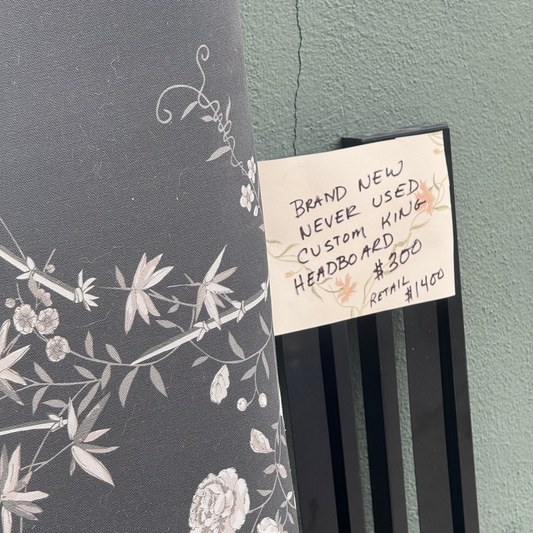 BRAND NEW
NEVER USED
CUSTOM KING
HEADBOARD
$300
RETAIL
$1400